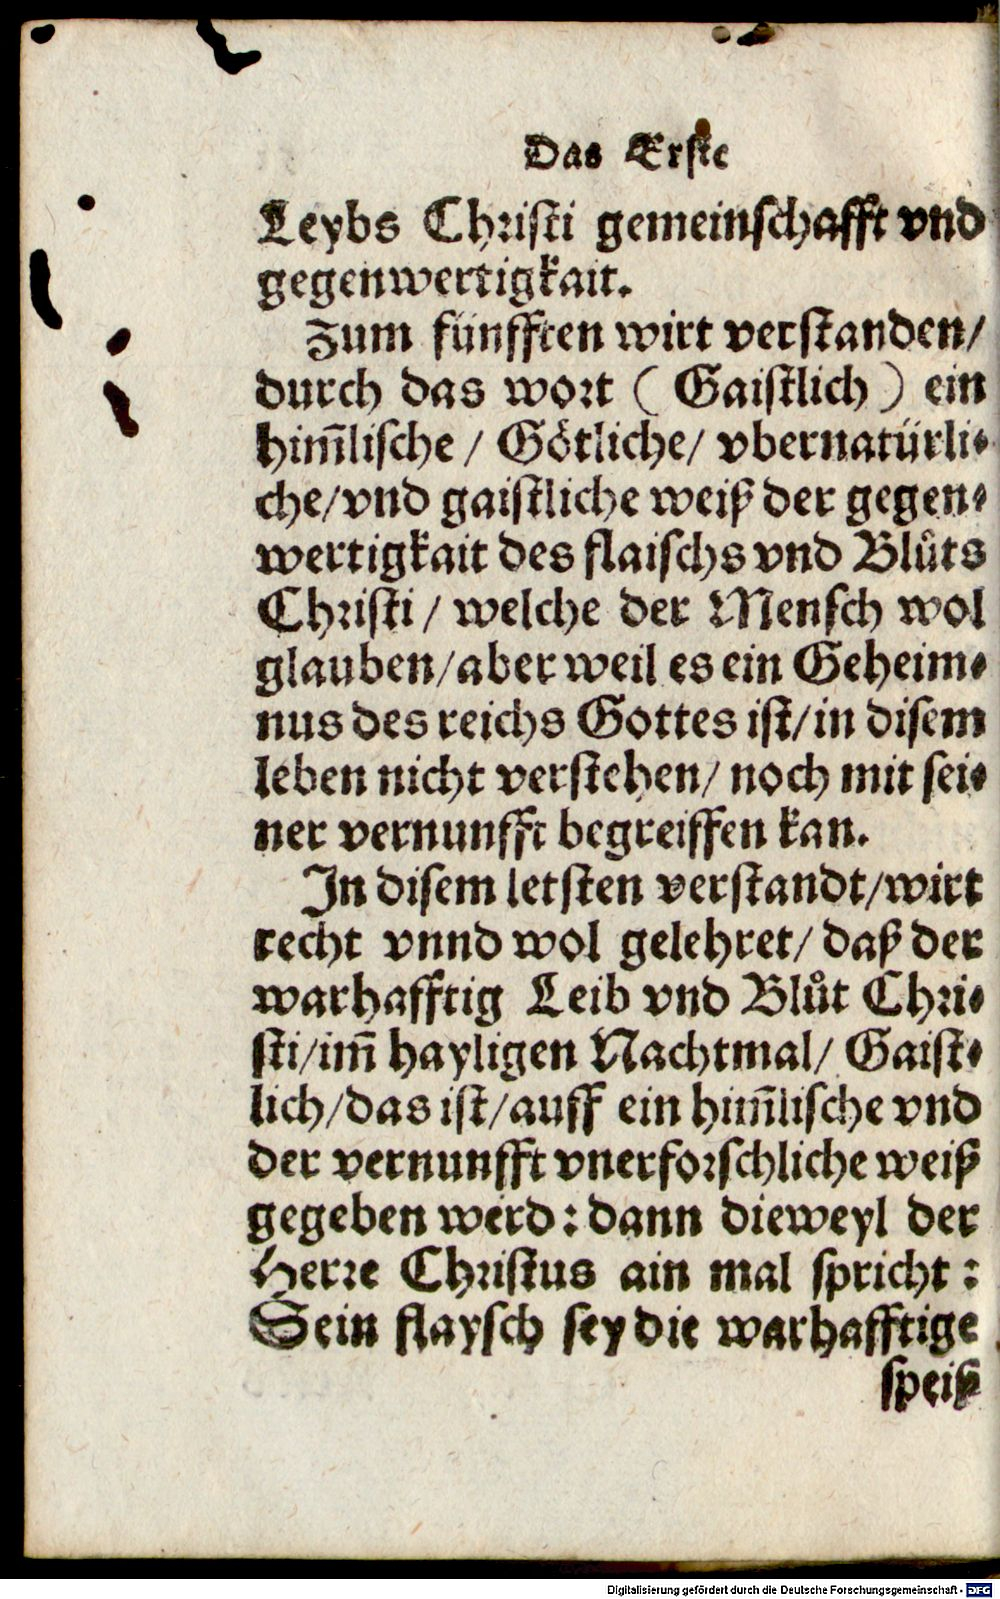 Das Erste
Leybs Christi gemeinschafft vnd
gegenwertigkait.
Zum fünfften wirt verstanden/
durch das wort ( Gaistlich ) ein
him̃lische / Götliche/ vbernatürli-
che/vnd gaistliche weiß der gegen-
wertigkait des flaischs vnd Blůts
Christi / welche der Mensch wol
glauben/aber weil es ein Geheim-
nus des reichs Gottes ist/in disem
leben nicht verstehen/ noch mit sei-
ner vernunfft begreiffen kan.
In disem letsten verstandt/wirt
recht vnnd wol gelehret/ daß der
warhafftig Leib vnd Blůt Chri-
sti/im̃ hayligen Nachtmal/ Gaist-
lich/das ist/auff ein him̃lische vnd
der vernunfft vnerforschliche weiß
gegeben werd: dann dieweyl der
Herre Christus ain mal spricht:
Sein flaysch sey die warhafftige
speiß
Digitalisierung gefördert durch die Deutsche Forschungsgemeinschaft - DFG